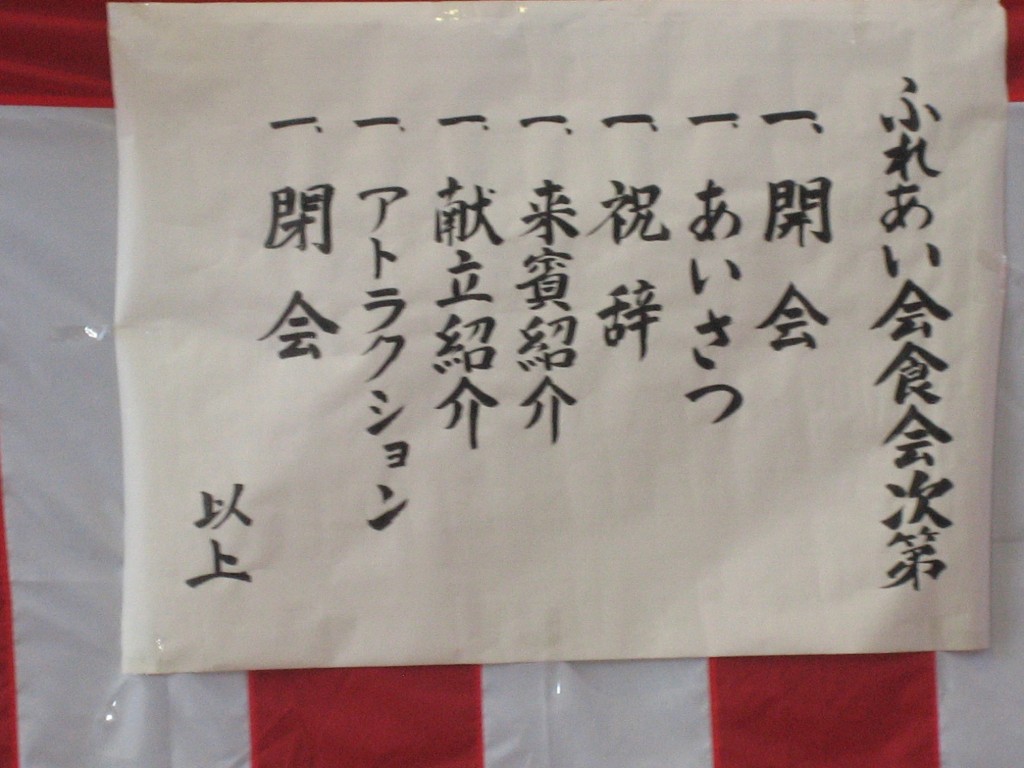 ふれあい会食会次第
一、開会
一、あいさつ
一、祝辞
一、来賓紹介
一、献立紹介
一、アトラクション
一、閉会
以上